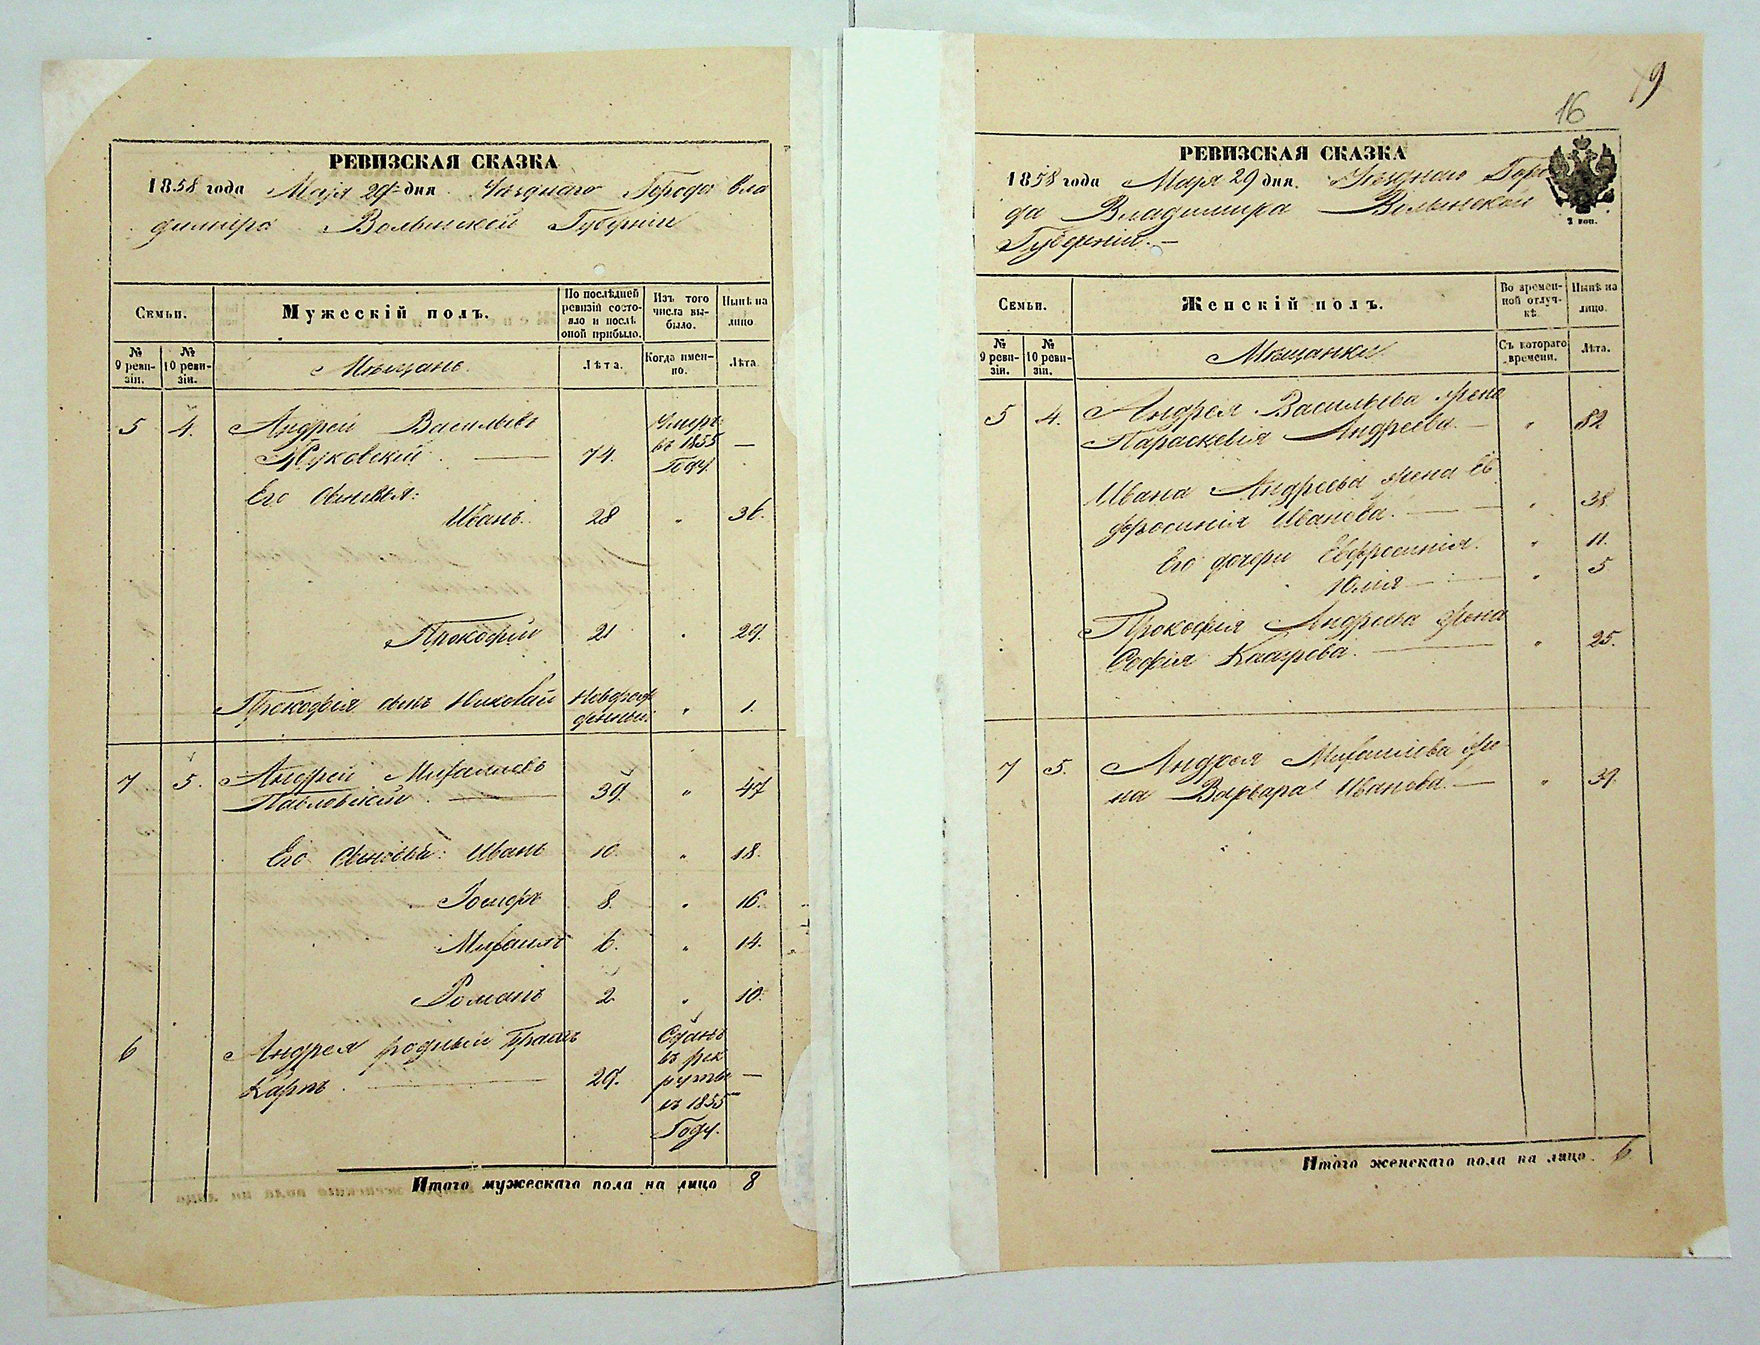 РЕВИЗСКАЯ СКАЗКА
1858 года Мая 29 дня. Уѣзднаго Города Вла
димира Волынской Губерніи
Семьи.
Мужескій полъ.
По послѣдней ревизіи состояло и послѣ оной прибыло.
Изъ того числа выбыло.
Нынѣ на лицо
№ 9 ревизіи.
№ 10 ревизіи.
Мѣщане.
Лѣта.
Когда именно.
Лѣта.
5 4. Андрей Васильевъ Умеръ
Жуковскій. 74. въ 1855 —
Году.
Его сыновья:
Иванъ. 28 " 36.
Прокофій 21 " 29.
Прокофія сынъ Николай Новорож
денный " 1.
7 5. Андрей Михайловъ
Павловскій. 39. " 47
Его сыновья: Иванъ 10. " 18.
Іосифъ 8. " 16.
Михаилъ 6. " 14.
Романъ 2 " 10.
6 Андрея родный братъ Сданъ
въ рек
Карпъ. 29. руты —
въ 1855
Году.
Итого мужескаго пола на лицо 8
19
16
РЕВИЗСКАЯ СКАЗКА
1858 года Мая 29 дня. Уѣзднаго Горо
да Владимира Волынской
Губерніи. —
2 коп.
Семьи.
Женскій полъ.
Во временной отлучкѣ.
Нынѣ на лицо.
№ 9 ревизіи.
№ 10 ревизіи.
Мѣщанки
Съ котораго времени.
Лѣта.
5 4. Андрея Васильева жена
Параскевія Андреева. — " 82
Ивана Андреева жена Ев
фросинія Иванова. " 38
Его дочери Евфросинія. " 11.
Юлія " 5
Прокофія Андреева жена
Софія " 25.
7 5. Андрея Михайлова же
на Варвара Иванова. — " 39
Итого женскаго пола на лицо. 6